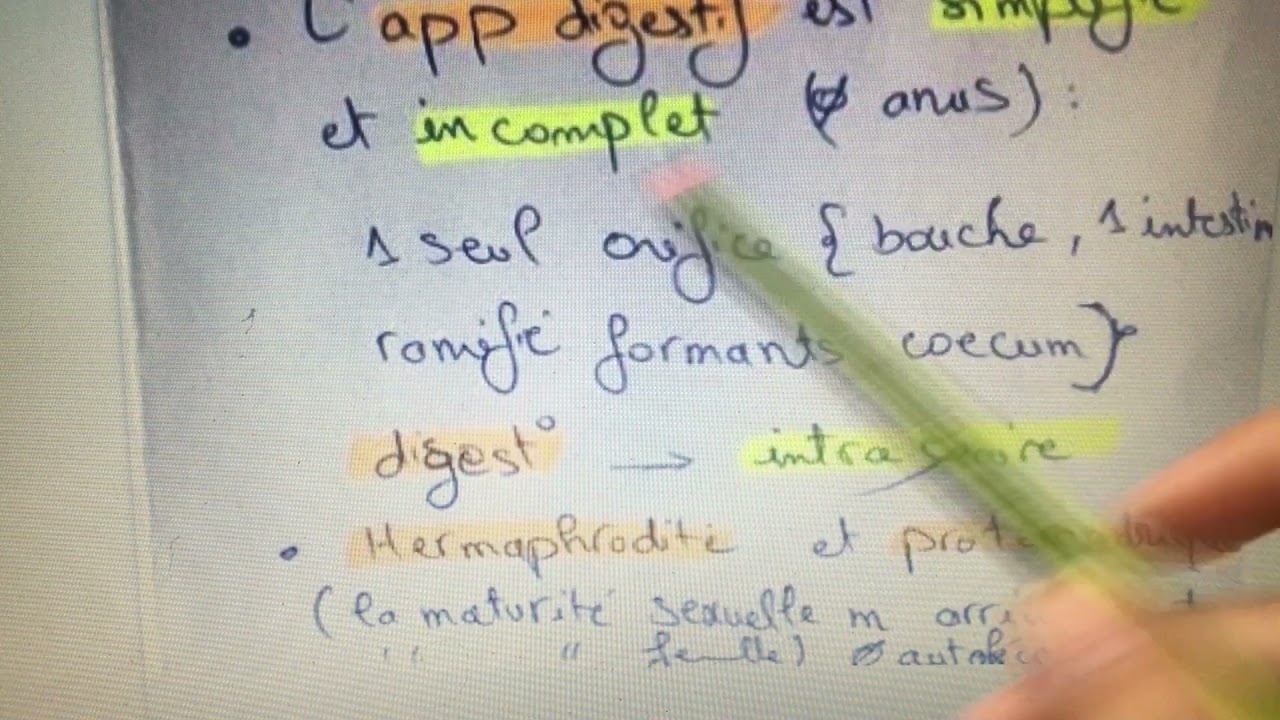 • L'app digestif est simplifié
et incomplet (∅ anus) :
1 seul orifice { bouche, 1 intestin
ramifié formants coecum }
digest° → intra
• Hermaphrodite et
(la maturité sexuelle m
" " femelle) ∅